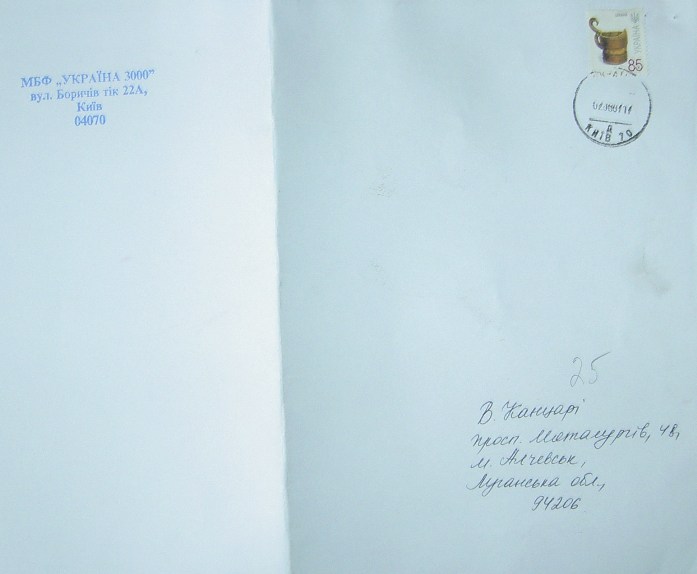 МБФ „УКРАЇНА 3000”
вул. Боричів тік 22А,
Київ
04070
УКРАЇНА
85
КИЇВ 70
25
В Канцарі
просп. Металургів, 48,
м. Алчевськ,
Луганська обл.,
94206